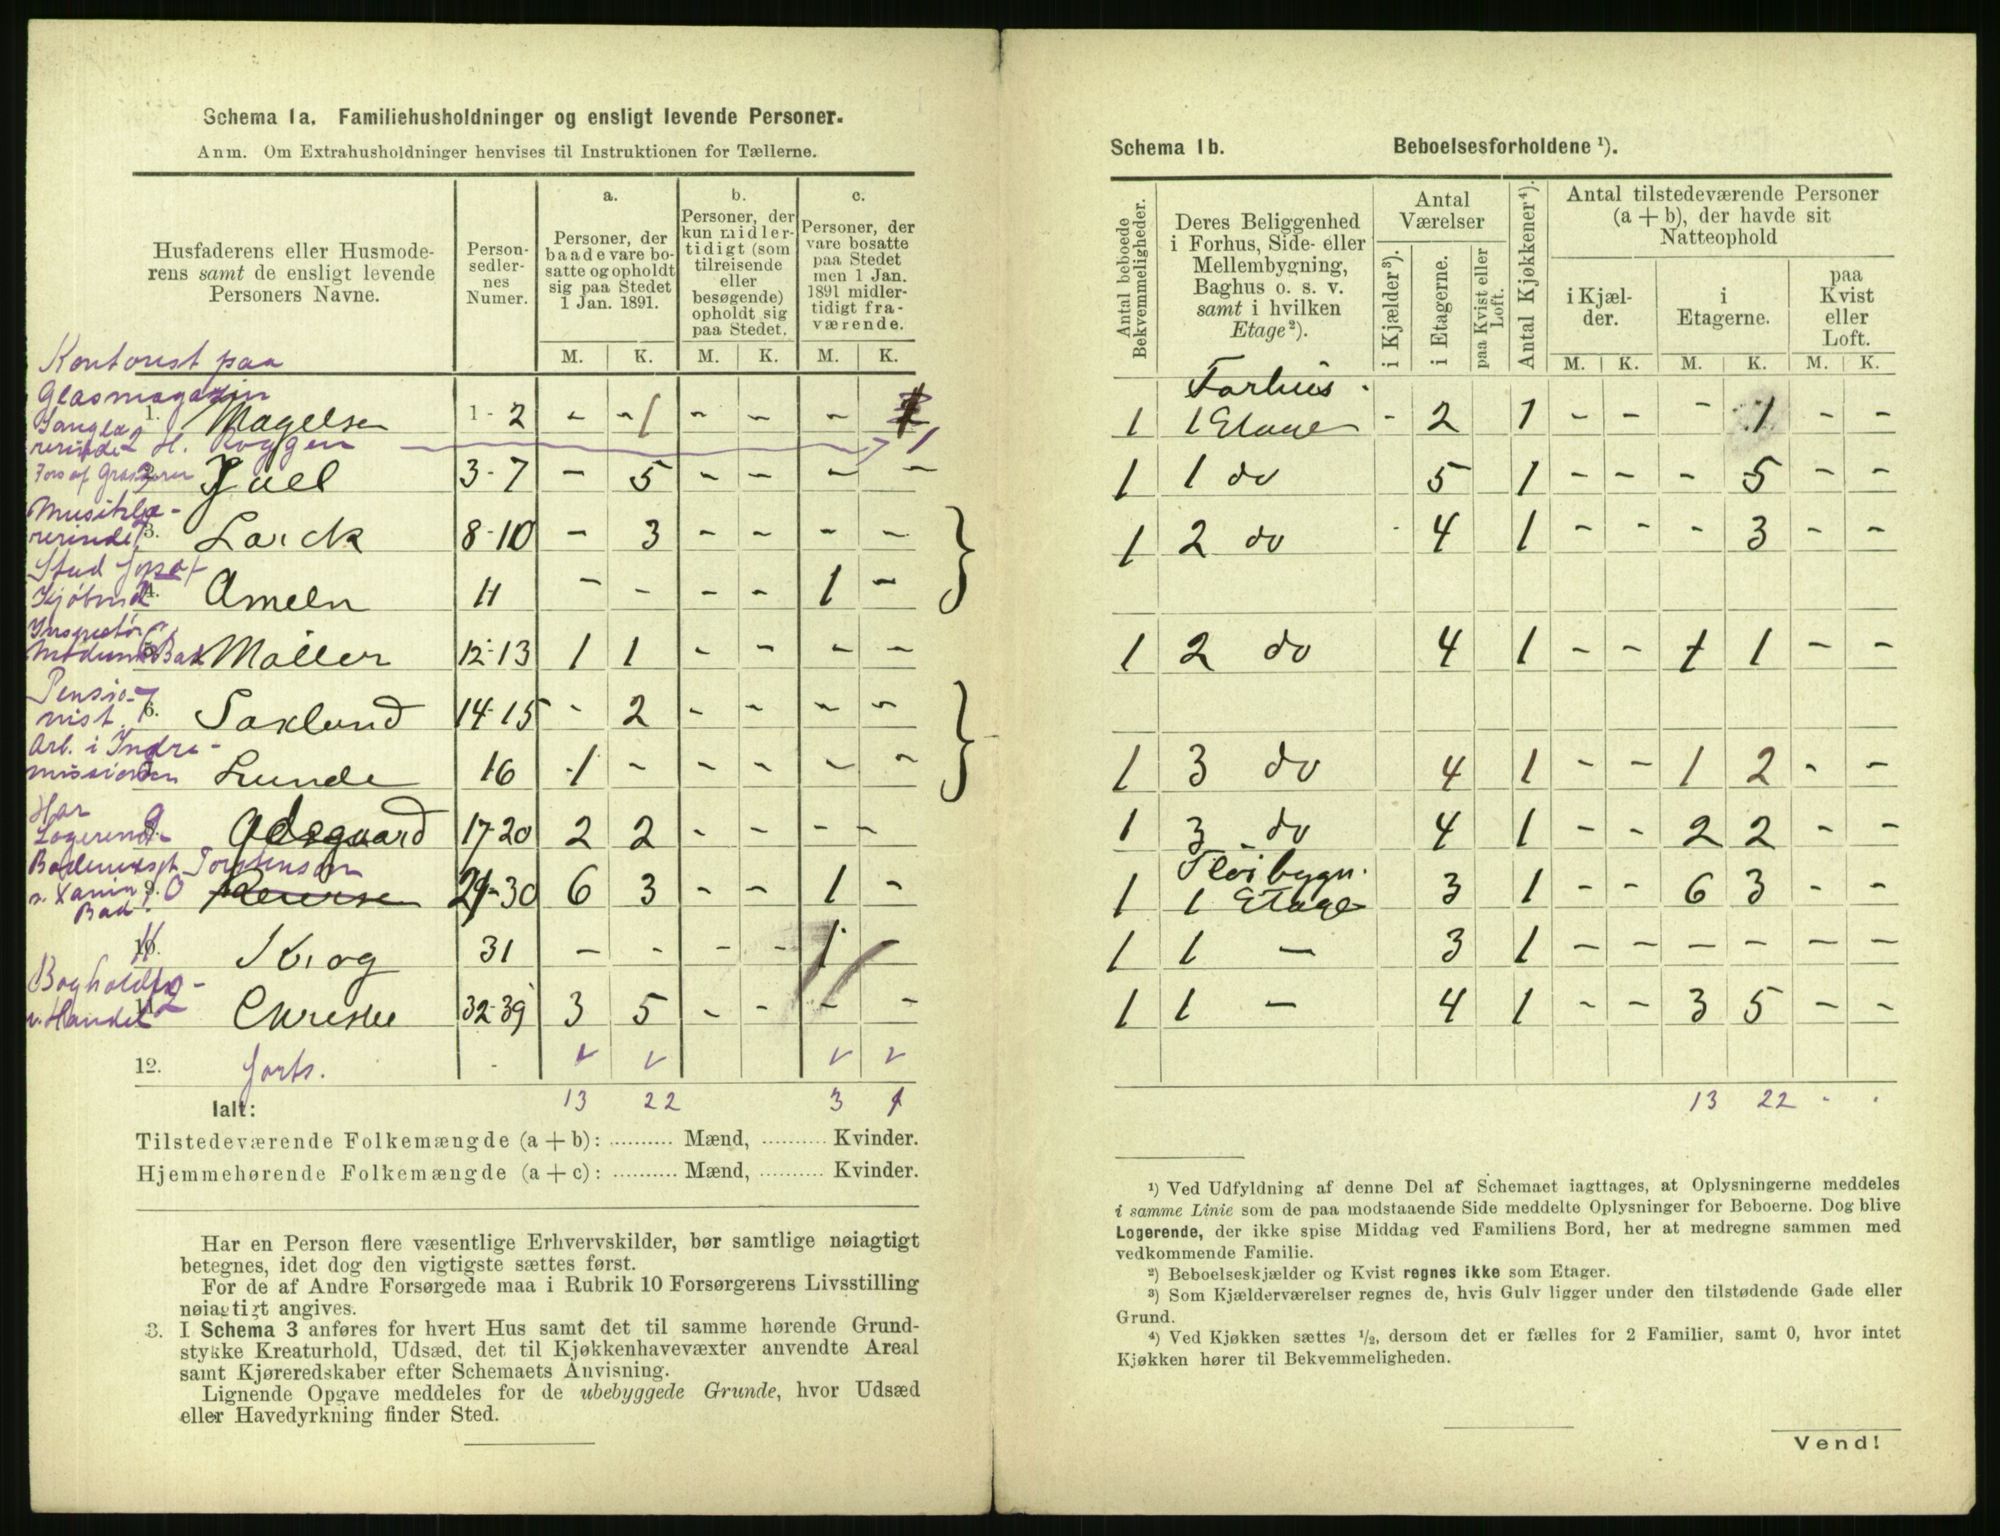 Schema 1a. Familiehusholdninger og ensligt levende Personer.
Anm. Om Extrahusholdninger henvises til Instruktionen for Tællerne.
Husfaderens eller Husmode-
rens samt de ensligt levende
Personers Navne.
Person-
sedler-
nes
Numer.
a.
Personer, der
baade vare bo-
satte og opholdt
sig paa Stedet
1 Jan. 1891.
b.
Personer, der
kun midler-
tidigt (som
tilreisende
eller
besøgende)
opholdt sig
paa Stedet.
c.
Personer, der
vare bosatte
paa Stedet
men 1 Jan.
1891 midler-
tidigt fra-
værende.
M. K. M. K. M. K.
Kontorist paa
Glasmagazin
1. Magelsen 1-2 - - 1 - - -
H. Roggen 1
2. Juell 3-7 - 5 - - - -
Musiklæ-
rerinde 3. Larck 8-10 - 3 - - - -
Stud
4. Ameln 11 - - - - 1 -
5. Møller 12-13 1 1 - - - -
Pensio- 7
nist 6. Saxlund 14-15 - 2 - - - -
Arb. i Indre-
missionen Lunde 16 1 - - - - -
Har 9
Logerende Odegaard 17-20 2 2 - - - -
Torstensen
Bad. 9. 21-30 6 3 - - 1 -
10. Krog 31 - - - - 1 -
Bogholder
v. Handel 11. Christie 32-39 3 5 - - - -
12. Forts. -
Ialt: 13 22 3 1
Tilstedeværende Folkemængde (a + b): .......... Mænd, .......... Kvinder.
Hjemmehørende Folkemængde (a + c): .......... Mænd, .......... Kvinder.
Har en Person flere væsentlige Erhvervskilder, bør samtlige nøiagtigt
betegnes, idet dog den vigtigste sættes først.
For de af Andre Forsørgede maa i Rubrik 10 Forsørgerens Livsstilling
nøiagtigt angives.
3. I Schema 3 anføres for hvert Hus samt det til samme hørende Grund-
stykke Kreaturhold, Udsæd, det til Kjøkkenhavevæxter anvendte Areal
samt Kjøreredskaber efter Schemaets Anvisning.
Lignende Opgave meddeles for de ubebyggede Grunde, hvor Udsæd
eller Havedyrkning finder Sted.
Schema 1b. Beboelsesforholdene ¹).
Antal beboede
Bekvemmeligheder.
Deres Beliggenhed
i Forhus, Side- eller
Mellembygning,
Baghus o. s. v.
samt i hvilken
Etage ²).
Antal
Værelser
i Kjælder ³).
i Etagerne.
paa Kvist eller
Loft.
Antal Kjøkkener ⁴).
Antal tilstedeværende Personer
(a + b), der havde sit
Natteophold
i Kjæl-
der.
i
Etagerne.
paa
Kvist
eller
Loft.
M. K. M. K. M. K.
Forhus
1 1 Etage - 2 1 - - - 1 - -
1 1 do 5 1 - - - 5 - -
1 2 do 4 1 - - - 3 - -
1 2 do 4 1 - - 1 1 - -
1 3 do 4 1 - - 1 2 - -
1 3 do 4 1 - - 2 2 - -
Fløibygn.
1 1 Etage 3 1 - - 6 3 - -
1 1 - 3 1 - - - - - -
1 1 - 4 1 - - 3 5 - -
13 22 - -
¹) Ved Udfyldning af denne Del af Schemaet iagttages, at Oplysningerne meddeles
i samme Linie som de paa modstaaende Side meddelte Oplysninger for Beboerne. Dog blive
Logerende, der ikke spise Middag ved Familiens Bord, her at medregne sammen med
vedkommende Familie.
²) Beboelseskjælder og Kvist regnes ikke som Etager.
³) Som Kjælderværelser regnes de, hvis Gulv ligger under den tilstødende Gade eller
Grund.
⁴) Ved Kjøkken sættes ½, dersom det er fælles for 2 Familier, samt 0, hvor intet
Kjøkken hører til Bekvemmeligheden.
Vend!